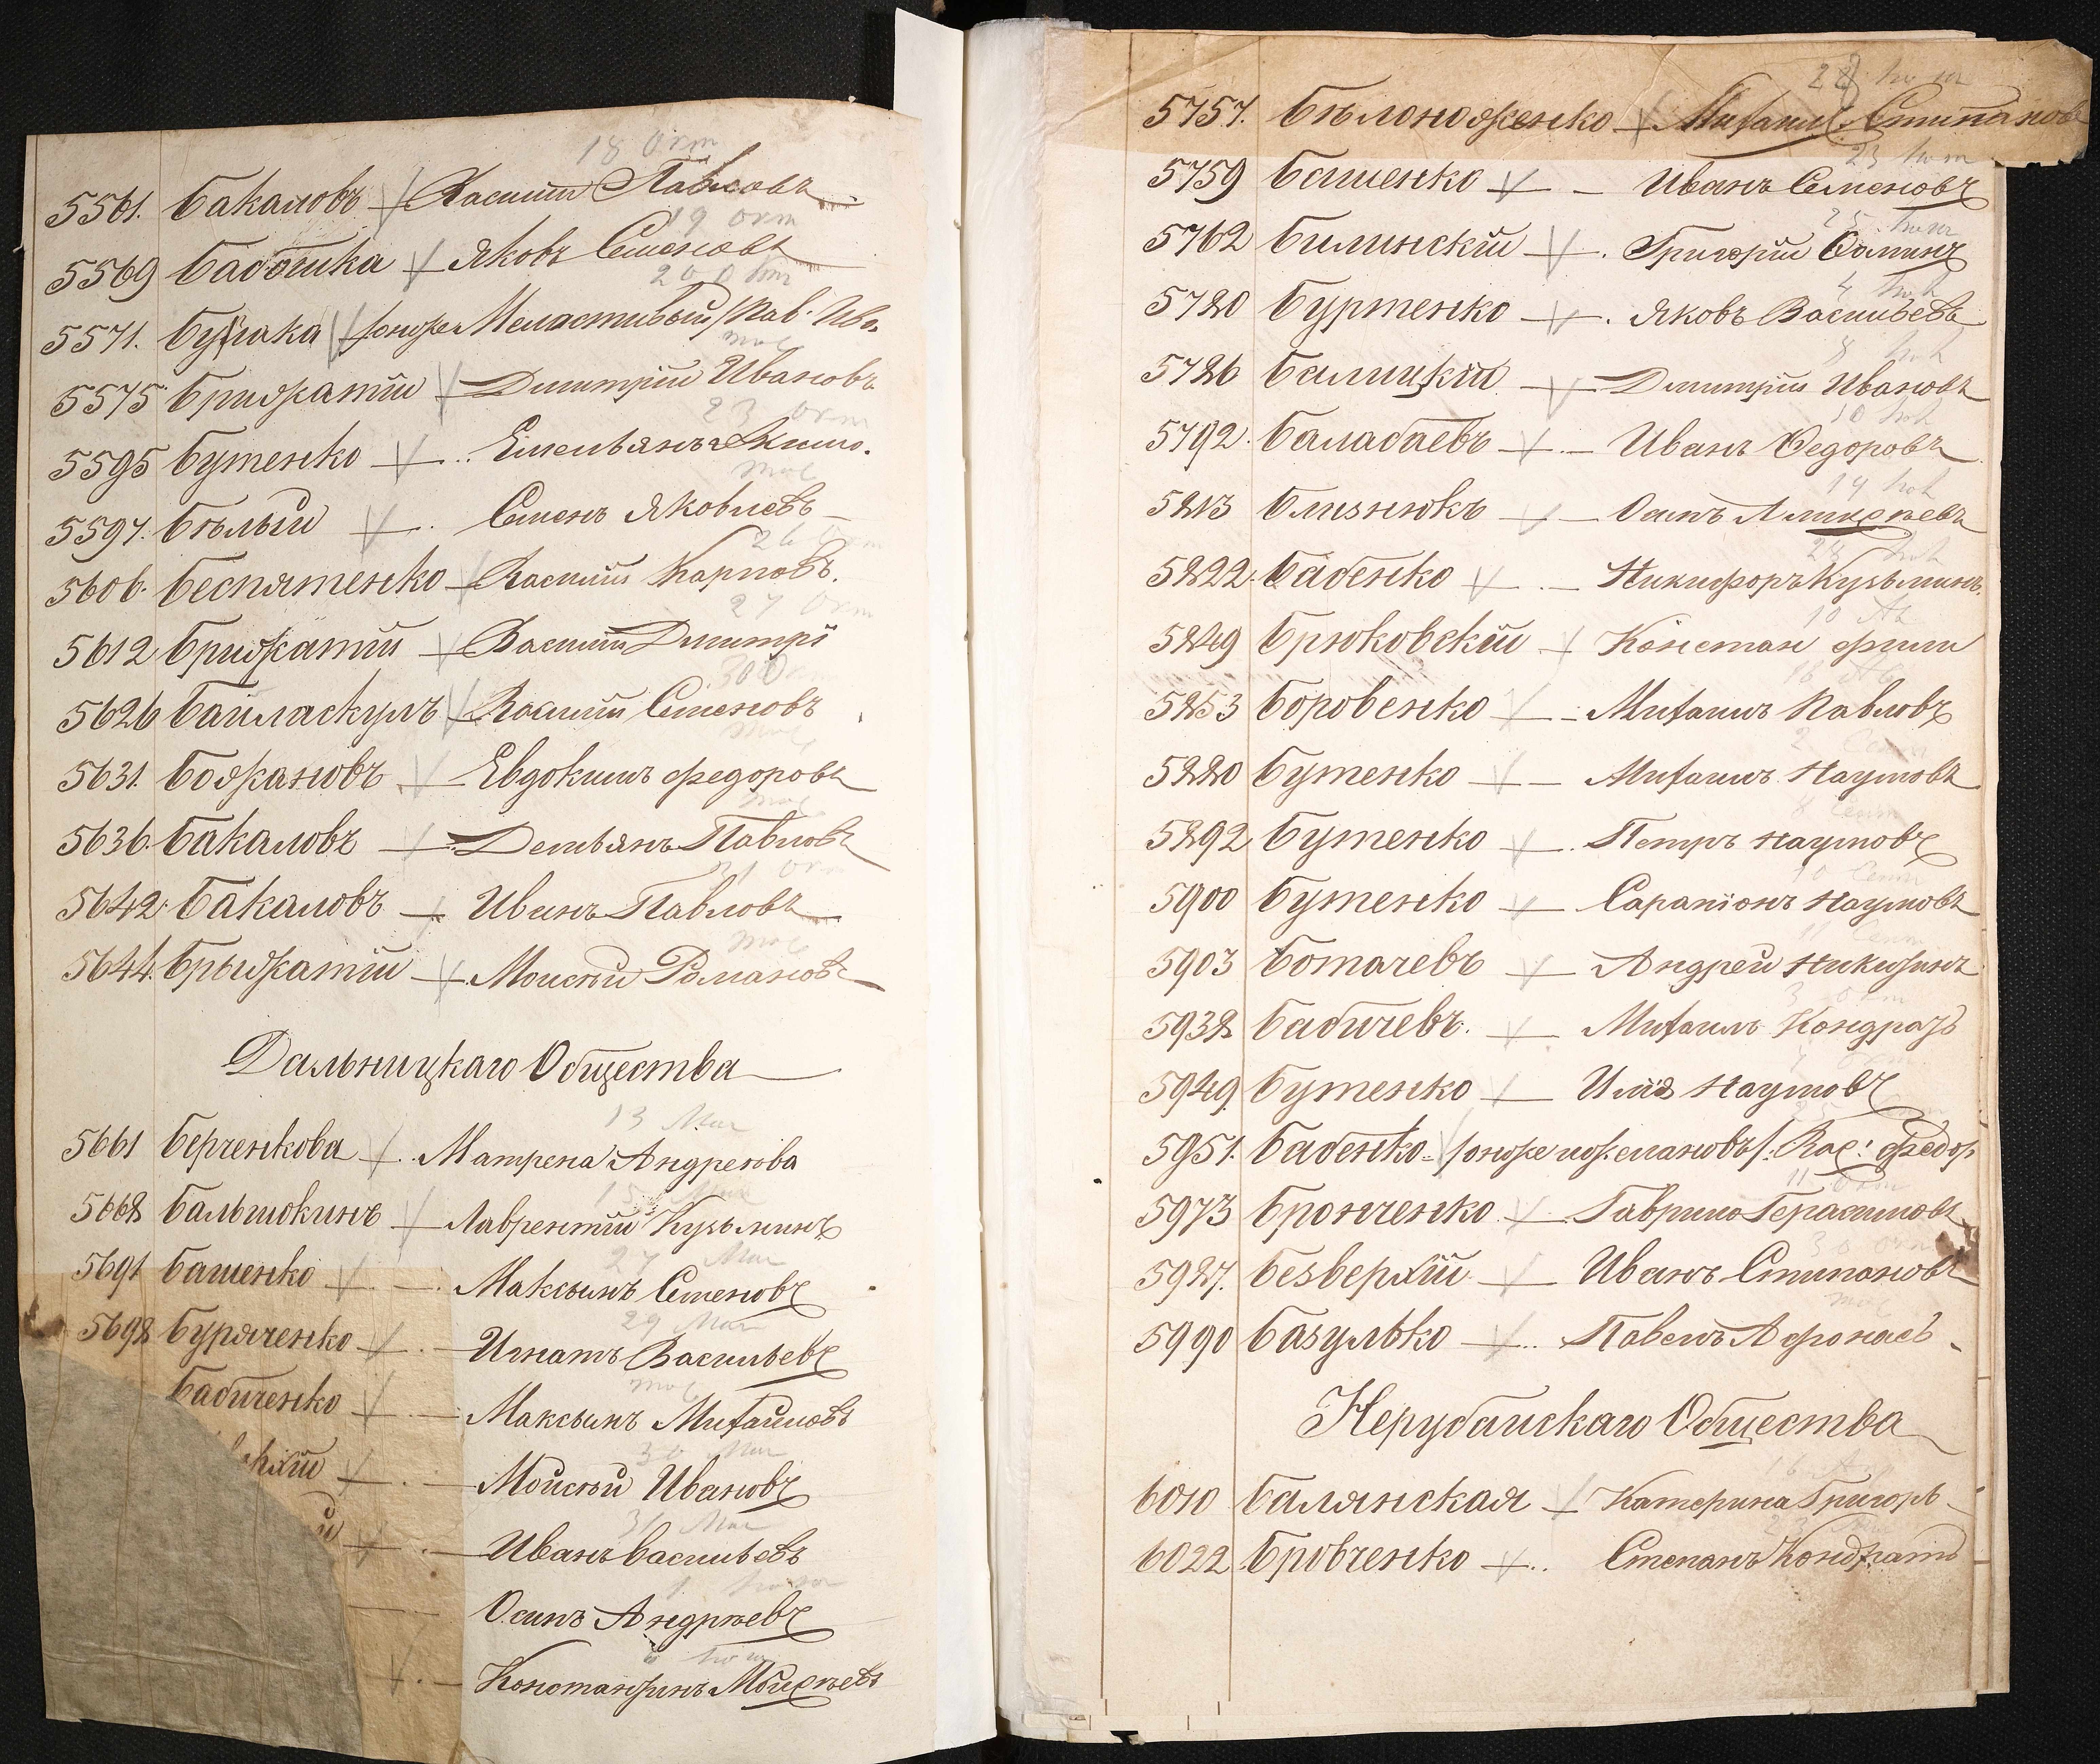 18 окт
5561. Бакаловъ Василий Павловъ
19 окт
5569 Баботика Яковъ Семеновъ
20 окт
5571. онже Меластивый Пав. Ива.
тоже
5575 Брижатій Дмитрій Ивановъ
23 окт
5595 Бутенко Емельянъ Акимо.
тоже
5597. Бѣлый Семенъ Яковлевъ
26 окт
5606. Беспятенко Василій Карповъ.
27 окт
5612 Брижатій Василій Дмитрі
30 окт
5626 Байласкулъ Василій Семеновъ
тоже
5631. Божановъ Евдокимъ Федоровъ
тоже
5636. Бакаловъ Демьянъ Павловъ
31 окт
5642. Бакаловъ Иванъ Павловъ
тоже
5644. Брыжатій Моисѣй Романовъ
Дальницкаго Общества
13 Мая
5661 Берченкова Матрена Андреева
15 Мая
5668 Бальшокинъ Лаврентій Кузьминъ
27 Мая
5691 Башенко Максымъ Семеновъ
29 Мая
5698 Буряченко Игнатъ Васильевъ
тоже
Бабиченко Максымъ Михайловъ
30 Мая
рхій Моисѣй Ивановъ
31 Мая
й Иванъ Васильевъ
Осипъ Андрѣевъ
Константинъ Моисѣевъ
5757. Бѣлоноженко Михаилъ Стипановъ
5759 Башенко Иванъ Семеновъ
5762 Билинскій Григорій Фоминъ
5780 Буртенко Яковъ Васильевъ
5786 Балицкій Дмитрій Ивановъ
5792. Балабаевъ Иванъ Федоровъ
5813 Близнюкъ Осипъ Алексѣевъ
5822. Бабенко Никифоръ Кузьминъ.
5849 Брюковскій Констан Фили
5853 Боровенко Михаилъ Павловъ
5880 Бутенко Михаилъ Наумовъ
8 Сент
5892 Бутенко Петръ Наумовъ
10 Сент
5900 Бутенко Сарапіонъ Наумовъ
11 Сент
5903 Ботачевъ Андрей Никифинъ
3 окт
5938 Бабичевъ. Михаилъ Кондрать
5949 Бутенко Илія Наумовъ
5951. Бабенко онже Вас: Федор
11 окт
5973 Бронченко Гаврило Герасимовъ
30 окт
5987. Безверхій Иванъ Стипановъ
тоже
5990 Базулько Павелъ Афонаев
Нерубайскаго Общества
6010 Балянская Катерина Григорь
6022 Бровченко Степанъ Кондрать